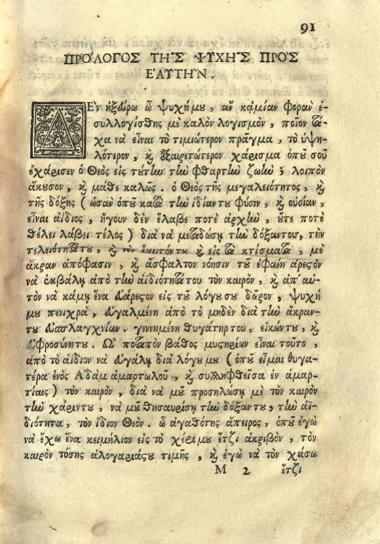 91
ΠΡΟΛΟΓΟΣ ΤΗΣ ΨΥΧΗΣ ΠΡΟΣ
ΕΑΥΤΗΝ.
ΔΕΝ ἠξεύρω ὦ ψυχήμυ, αὐ καμίαν φορὰν ἐ-
συλλογίσθης μὲ καλὸν λογισμὸν, ποῖον τά-
χα νὰ εἶναι τὸ τιμιώτερον πράγμα, τὸ ὑψη-
λότερον, ϗ ἐξαιρετώτερον χάρισμα ὁπῦ σοῦ
ἐχάρισεν ὁ Θεὸς εἰς τύτην τὴν φθαρτὴν ζωήν; λοιπὸν
ἄκυσον, ϗ μάθε καλῶς. ὁ Θεὸς τῆς μεγαλειότητος, ϗ
τῆς δόξης (ὡσὰν ὁπῦ κατὰ τὴν ἰδίαντυ φύσιν, ϗ οὐσίαν,
εἶναι ἀΐδιος, ἤγουν δὲν ἔλαβε ποτὲ ἀρχὴν, ὄτε ποτὲ
θέλει λάβει τέλος) διὰ νὰ μεταδώσῃ τὴν δόξαντυ, τὴν
τελειότητάτυ, ϗ τὸν ἑαυτόντυ ϗ εἰς τὰ κτίσματα, μὲ
ἄκραν ἀπόφασιν, ϗ ἄσφαλτον νόησιν τῦ ἐφάνη ἀρεςὸν
νὰ ἐκβάλῃ ἀπὸ τὴν ἀϊδιότητάτυ τὸν καιρὸν, ϗ ἀπ' αὐ-
τὸν νὰ κάμῃ ἕνα εὐάρεςον εἰς τῦ λόγυσυ δῶρον, ψυχή
μυ πενιχρὰ, εὐγαλμένη ἀπὸ τὸ μηδὲν διὰ τὴν ἄκραν-
τυ εὐσπλαγχνίαν. γιννημένη θυγάτηρτυ, εἰκώντυ, ϗ
εὐφροσύνητυ. Ὢ ποταπὸν βάθος μυςηρίων εἶναι τοῦτο,
ἀπὸ τὸ ἀΐδιον νὰ εὐγάλῃ διὰ λόγυμυ (ὁπῦ εἶμαι θυγα-
τέρα ἑνὸς Ἀδὰμ ἁμαρτωλοῦ, ϗ συλληφθεῖσα ἐν ἁμαρ-
τίαις) τὸν καιρὸν, διὰ νὰ μῦ προσηλώσῃ μὲ τὸν καιρὸν
τὴν χάριντυ, νὰ μῦ θησαυρίσῃ τὴν δόξαντυ, τὴν ἀϊ-
διότητα, τὸν ἴδιον Θεόν. ὦ ἀγαθότης ἄπειρος, ὁπῦ ἐγὼ
νὰ ἔχω ἕνα κειμήλιον εἰς τὸ χέριμυ ἔτζι ἀκριβὸν, τὸν
καιρὸν τόσης ἀλογαριάςυ τιμῆς, ϗ ἐγὼ νὰ τὸν χάσω
Μ 2 ἔτζι